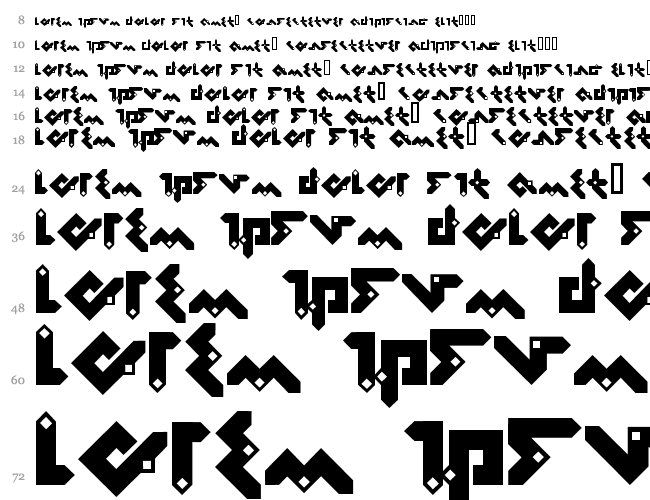 8 Lorem ipsum dolor sit amet▯ consectetuer adipiscing elit▯▯▯
10 Lorem ipsum dolor sit amet▯ consectetuer adipiscing elit▯▯▯
12 Lorem ipsum dolor sit amet▯ consectetuer adipiscing elit▯
14 Lorem ipsum dolor sit amet▯ consectetuer adipis
16 Lorem ipsum dolor sit amet▯ consectetuer
18 Lorem ipsum dolor sit amet▯ consectet
24 Lorem ipsum dolor sit amet▯
36 Lorem ipsum dolor s
48 Lorem ipsum do
60 Lorem ipsum
72 Lorem ipsu